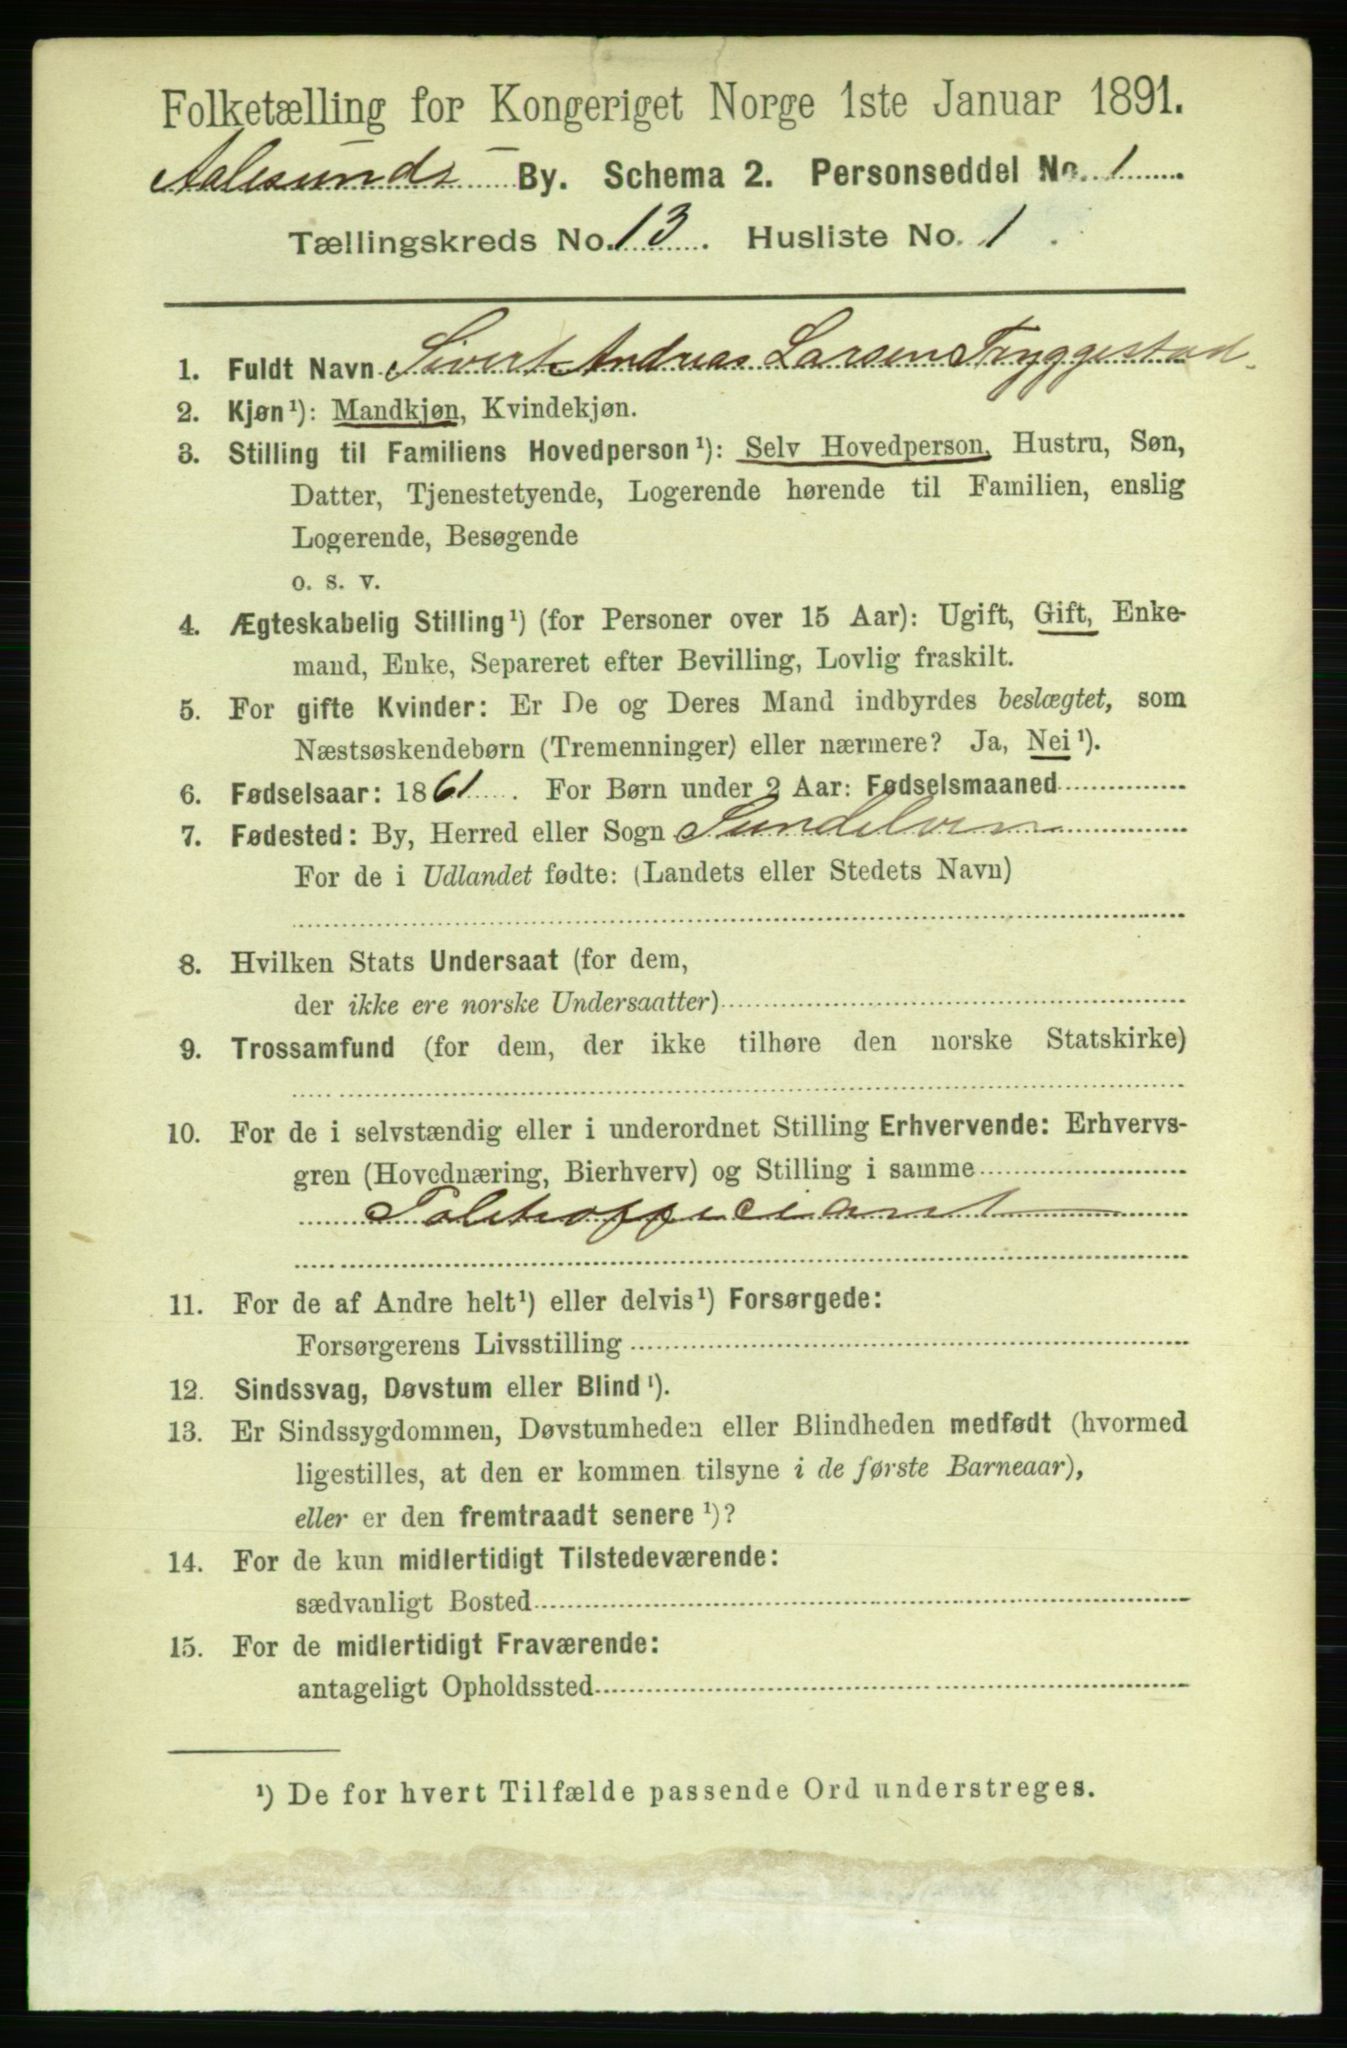 Folketælling for Kongeriget Norge 1ste Januar 1891.
Aalesunds By. Schema 2. Personseddel No. 1
Tællingskreds No. 13. Husliste No. 1.
1. Fuldt Navn Sivert Andreas Larsen Tryggestad.
2. Kjøn¹): Mandkjøn, Kvindekjøn.
3. Stilling til Familiens Hovedperson¹): Selv Hovedperson, Hustru, Søn,
Datter, Tjenestetyende, Logerende hørende til Familien, enslig
Logerende, Besøgende
o. s. v.
4. Ægteskabelig Stilling¹) (for Personer over 15 Aar): Ugift, Gift, Enke-
mand, Enke, Separeret efter Bevilling, Lovlig fraskilt.
5. For gifte Kvinder: Er De og Deres Mand indbyrdes beslægtet, som
Næstsøskendebørn (Tremenninger) eller nærmere? Ja, Nei¹).
6. Fødselsaar: 1861. For Børn under 2 Aar: Fødselsmaaned
7. Fødested: By, Herred eller Sogn Sundelven
For de i Udlandet fødte: (Landets eller Stedets Navn)
8. Hvilken Stats Undersaat (for dem,
der ikke ere norske Undersaatter)
9. Trossamfund (for dem, der ikke tilhøre den norske Statskirke)
10. For de i selvstændig eller i underordnet Stilling Erhvervende: Erhvervs-
gren (Hovednæring, Bierhverv) og Stilling i samme
Toldtofficiant
11. For de af Andre helt¹) eller delvis¹) Forsørgede:
Forsørgerens Livsstilling
12. Sindssvag, Døvstum eller Blind¹).
13. Er Sindssygdommen, Døvstumheden eller Blindheden medfødt (hvormed
ligestilles, at den er kommen tilsyne i de første Barneaar),
eller er den fremtraadt senere¹)?
14. For de kun midlertidigt Tilstedeværende:
sædvanligt Bosted
15. For de midlertidigt Fraværende:
antageligt Opholdssted
¹) De for hvert Tilfælde passende Ord understreges.